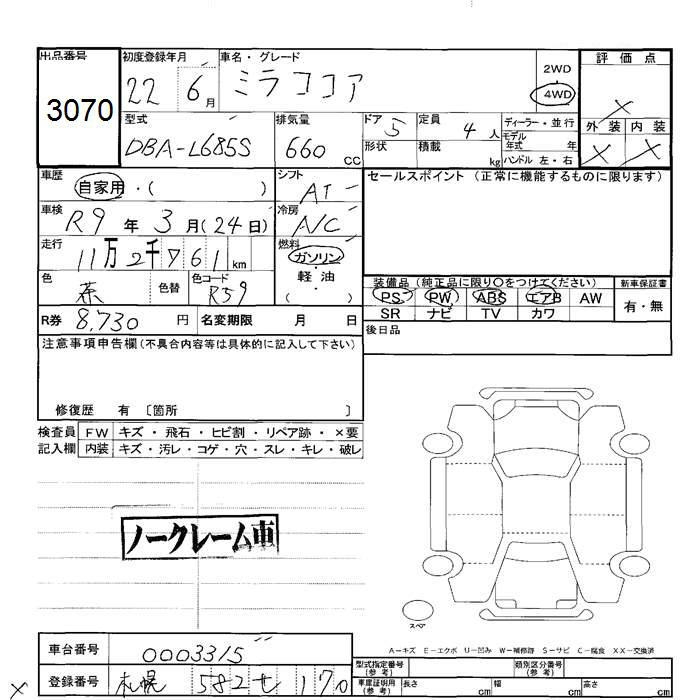 出品番号
3070
初度登録年月
22 6月
車名・グレード
ミラココア
2WD
4WD
評価点
×
外装 内装
× ×
型式
DBA-L685S
排気量
660 cc
ドア 5
形状
定員 4人
積載 kg
ディーラー・並行
モデル年式 年
ハンドル 左・右
車歴
自家用・( )
シフト
AT
セールスポイント (正常に機能するものに限ります)
車検
R9年 3月(24日)
冷房
A/C
走行
11万2千761km
燃料
ガソリン
軽油
( )
色
茶
色替
色コード
R59
装備品(純正品に限り○をつけてください)
PS PW ABS エアB AW
SR ナビ TV カワ
新車保証書
有・無
R券 8,730円
名変期限 月 日
後日品
注意事項申告欄(不具合内容等は具体的に記入して下さい)
修復歴 有〔箇所 〕
検査員 FW キズ・飛石・ヒビ割・リペア跡・×要
記入欄 内装 キズ・汚レ・コゲ・穴・スレ・キレ・破レ
ノークレーム車
スペア
A-キズ E-エクボ U-凹み W-補修跡 S-サビ C-腐食 XX-交換済
車台番号 0003315
登録番号 札幌 582 セ 170
×
型式指定番号(参考)
類別区分番号(参考)
車庫証明用(参考) 長さ cm 幅 cm 高さ cm